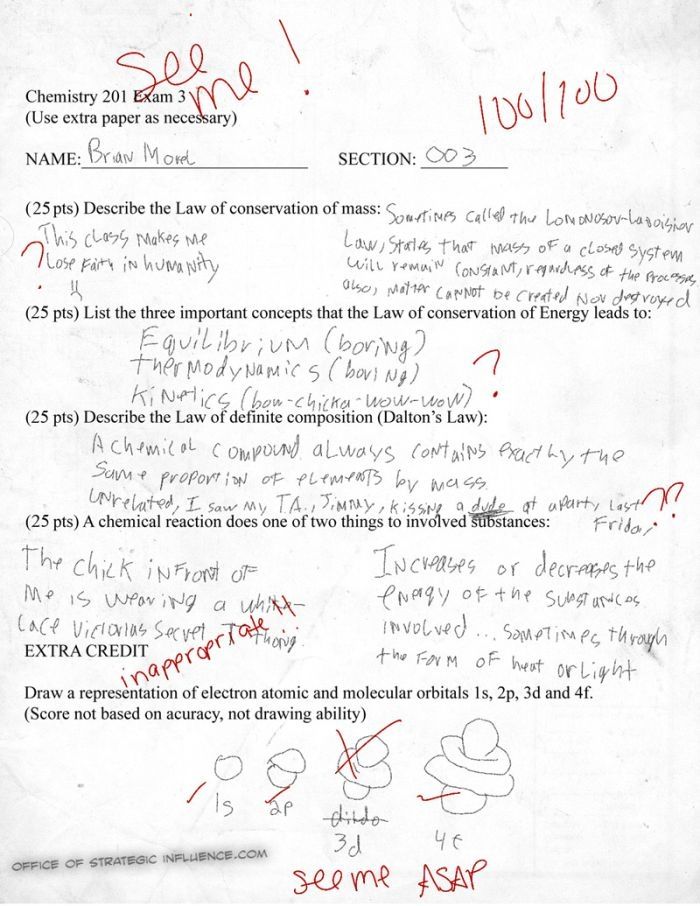 See me!
Chemistry 201 Exam 3
(Use extra paper as necessary)
100/100
NAME: Brian Morel SECTION: 003
(25 pts) Describe the Law of conservation of mass: Sometimes called the Lomonosov-Lavoisier
Law, states that mass of a closed system
will remain constant, regardless of the processes
also, matter cannot be created nor destroyed
This class makes me
? lose faith in humanity
(25 pts) List the three important concepts that the Law of conservation of Energy leads to:
Equilibrium (boring)
thermodynamics (boring)
Kinetics (bow-chicka-wow-wow) ?
(25 pts) Describe the Law of definite composition (Dalton's Law):
A chemical compound always contains exactly the
same proportion of elements by mass.
Unrelated, I saw my TA, Jimmy, kissing a dude at a party last
Friday. ??
(25 pts) A chemical reaction does one of two things to involved substances:
The chick in front of
me is wearing a white-
lace Victorias Secret thong.
inappropriate!!
Increases or decreases the
energy of the substances
involved... sometimes through
the form of heat or light
EXTRA CREDIT
Draw a representation of electron atomic and molecular orbitals 1s, 2p, 3d and 4f.
(Score not based on acuracy, not drawing ability)
1s 2p dildo 4f
3d
OFFICE OF STRATEGIC INFLUENCE.COM
see me ASAP